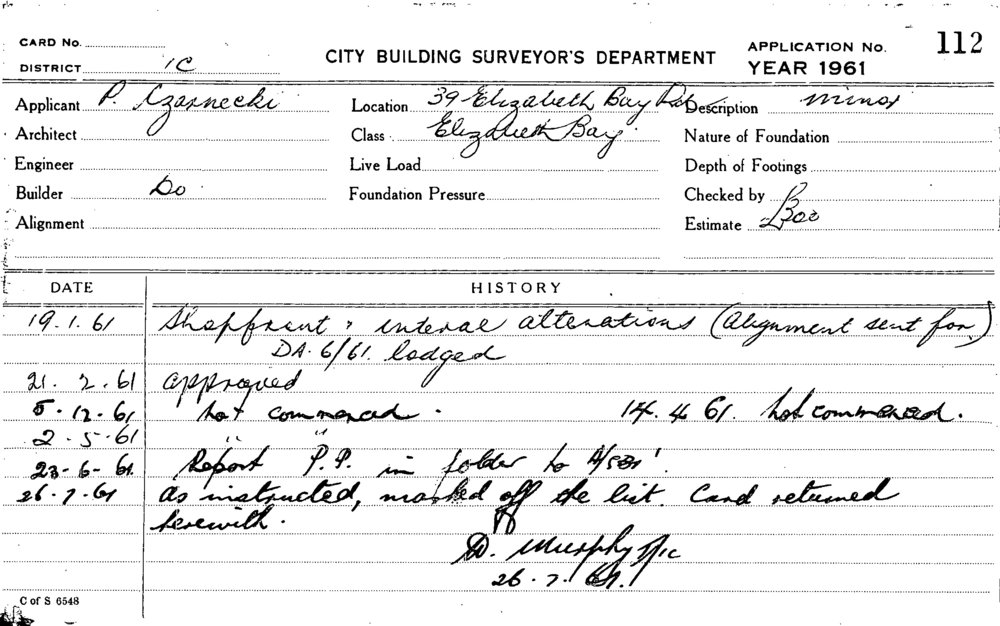 CARD No.
DISTRICT 1C
CITY BUILDING SURVEYOR'S DEPARTMENT
APPLICATION No. 112
YEAR 1961
Applicant P. Czarnecki
Location 39 Elizabeth Bay Rd
Description minor
Architect
Class Elizabeth Bay.
Nature of Foundation
Engineer
Live Load
Depth of Footings
Builder Do
Foundation Pressure
Checked by
Alignment
Estimate £800
DATE HISTORY
19.1.61 Shopfront & internal alterations (Alignment sent for)
DA. 6/61. lodged
21. 2. 61 approved
5.12.61 not commenced. 14.4.61. not commenced.
2.5.61 " "
23.6.61 Report P.P. in folder to
26.7.61 As instructed, marked off the list. Card returned
herewith.
D. Murphy
26.7.61.
C of S 6548